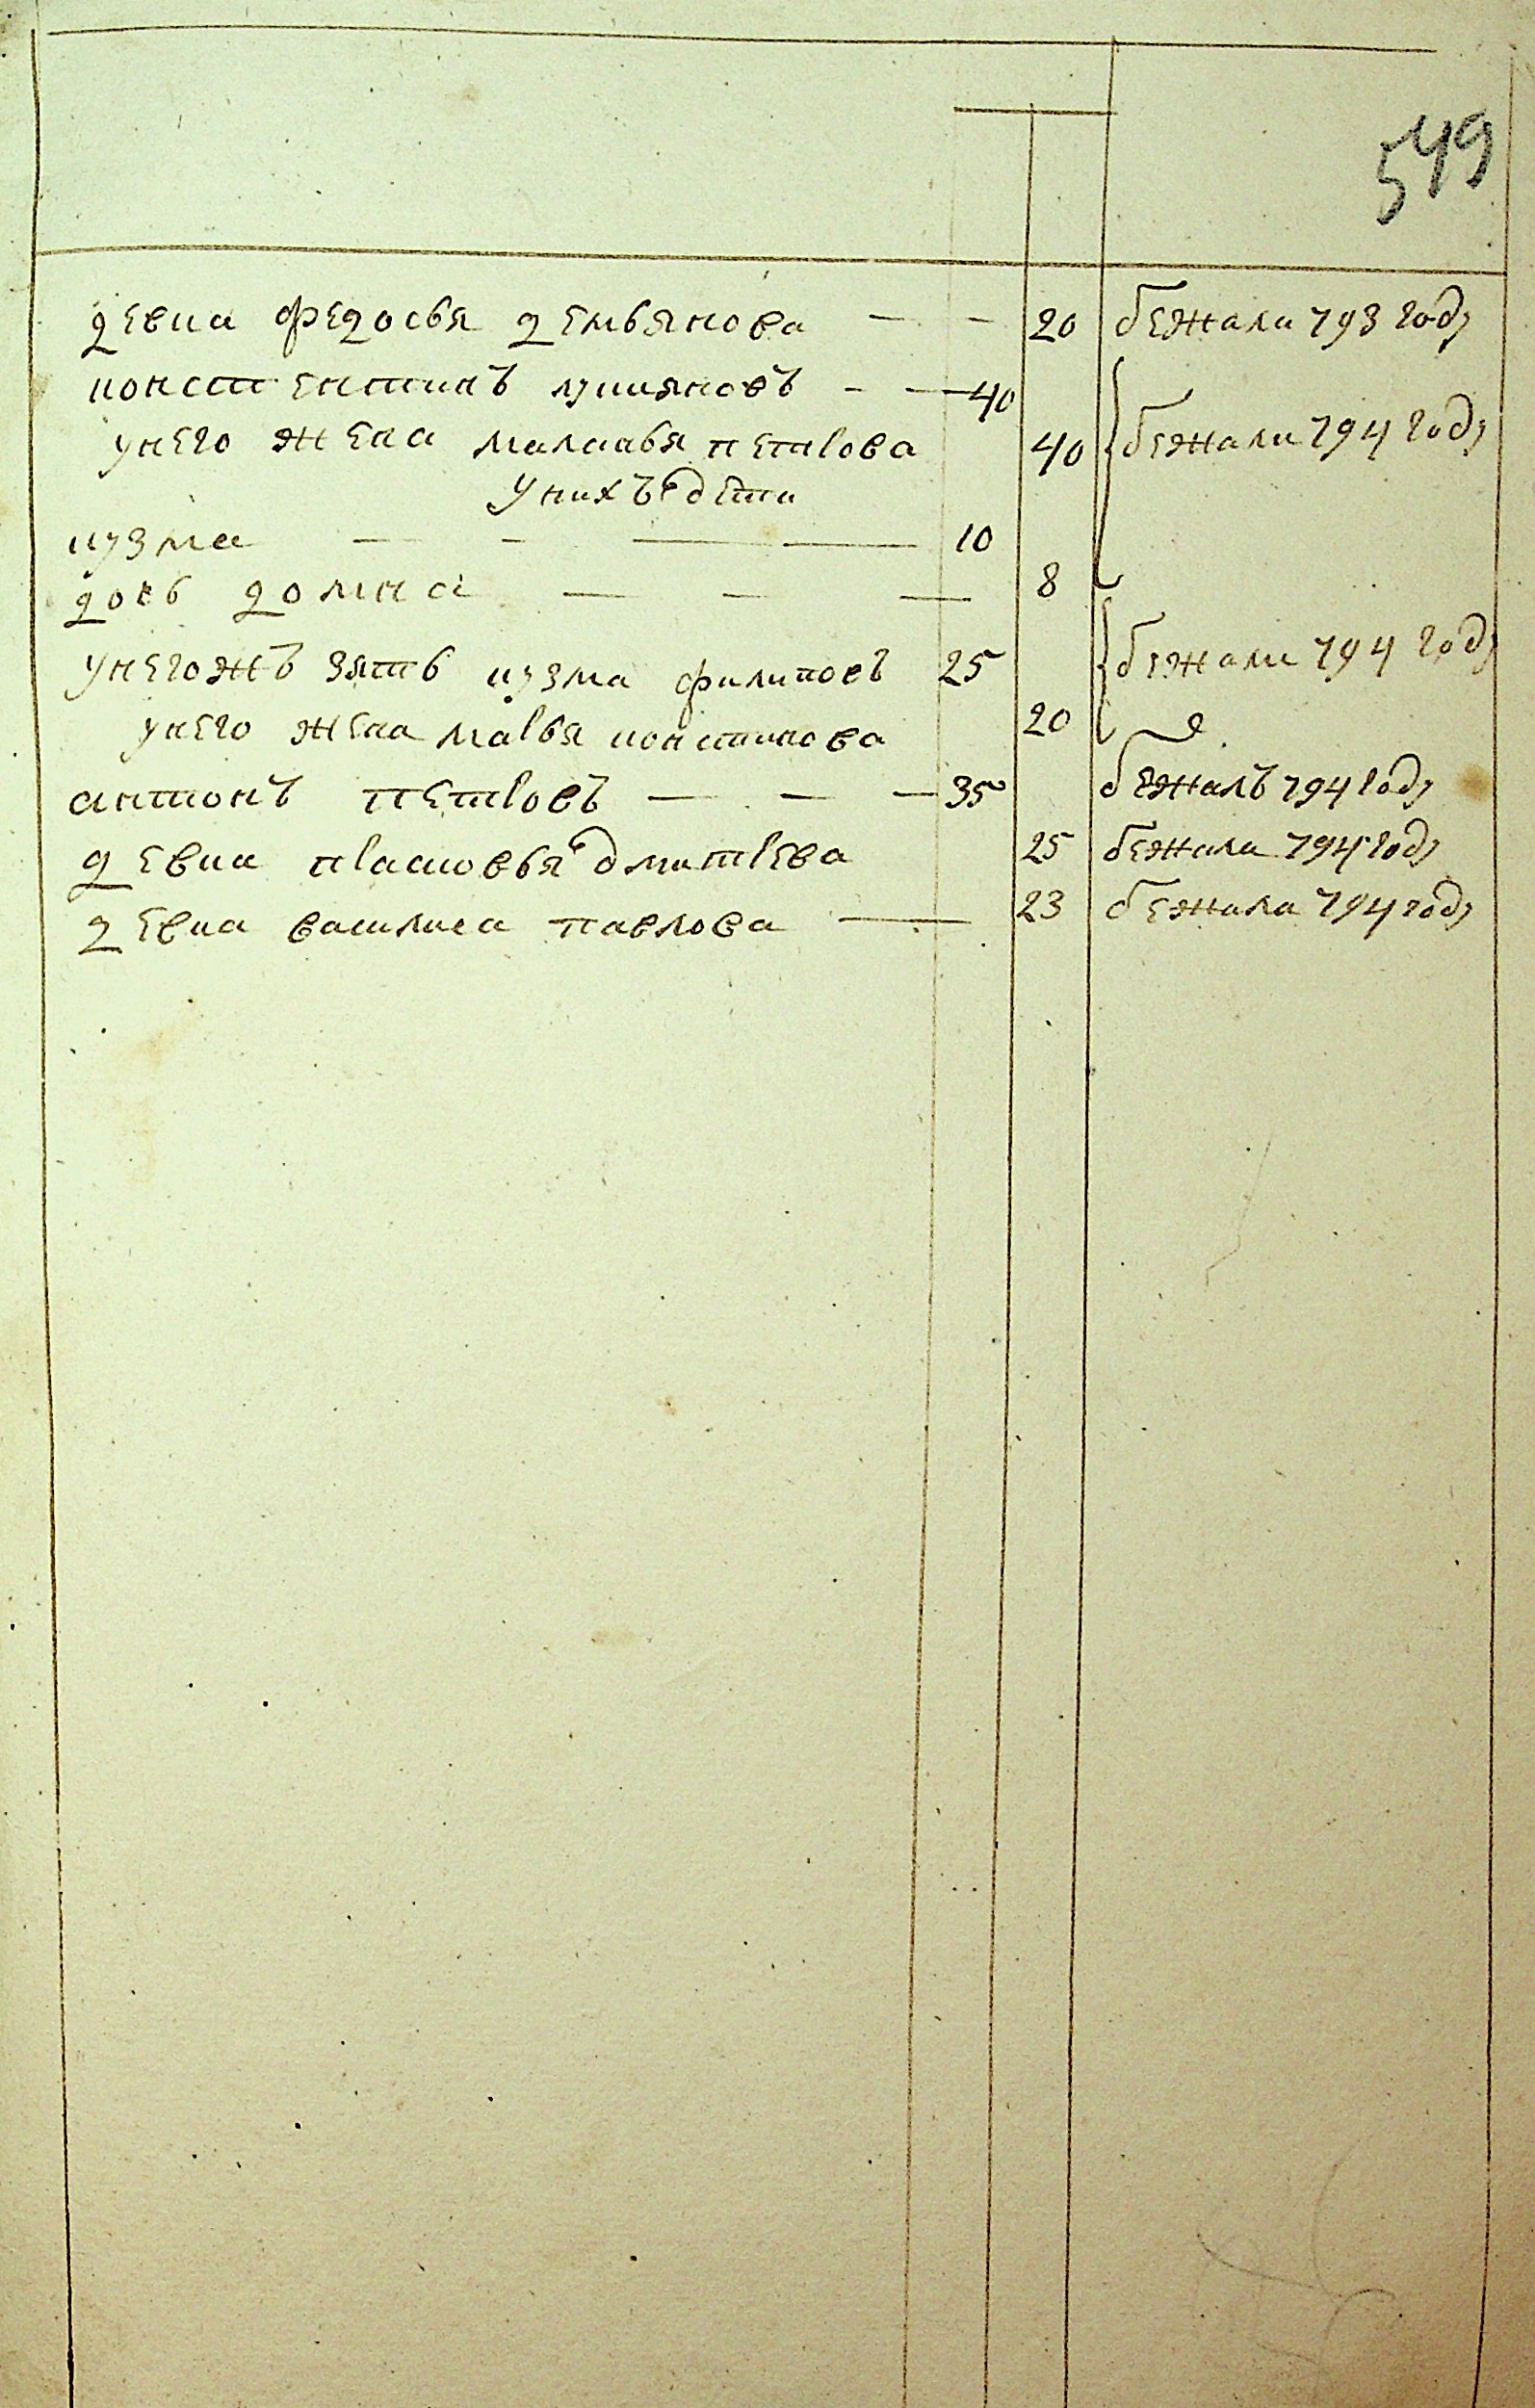 549
девка федосья демьянова — — 20 бежала 793 году
констентинъ лукьяновъ — — 40
у него жена маланья петрова 40 бежали 794 году
у нихъ дети
кузма — — — — 10
дочь домна — — — 8
у негожъ зять кузма филиповъ 25 бежали 794 году
у него жена марья констинова 20
антонъ петровъ — — — 35 бежалъ 794 году
девка прасковья дмитрева 25 бежала 794 году
девка василиса павлова — 23 бежала 794 году